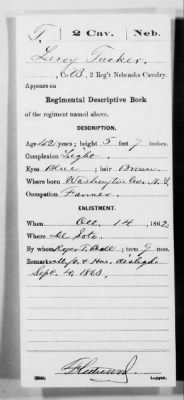 T. | 2 Cav. | Neb.
Leroy Tucker
, Co. B, 2 Reg't Nebraska Cavalry.
Appears on
Regimental Descriptive Book
of the regiment named above.
DESCRIPTION.
Age 42 years; height 5 feet 7 inches.
Complexion Light
Eyes Blue; hair Brown
Where born Washington Co. N.Y.
Occupation Farmer
ENLISTMENT.
When Oct. 14, 1862.
Where De Soto
By whom Roger T. Beall; term 9 mos.
Remarks:
Sept. 4, 1863.
Copyist.